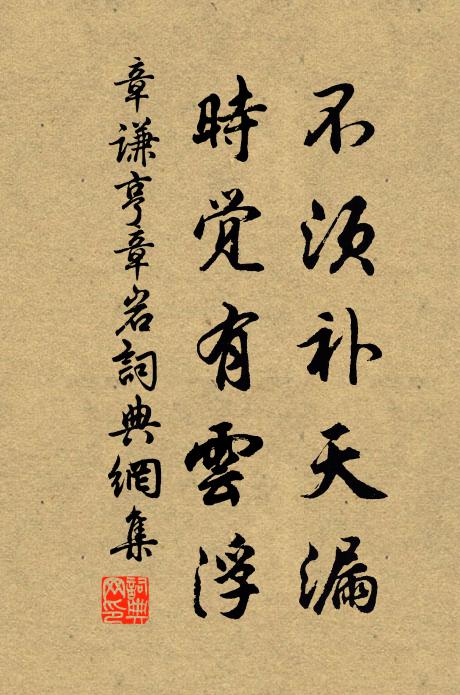 不须补天漏
時觉有雲浮
章谦亨章岩詞典網集
詞典網印